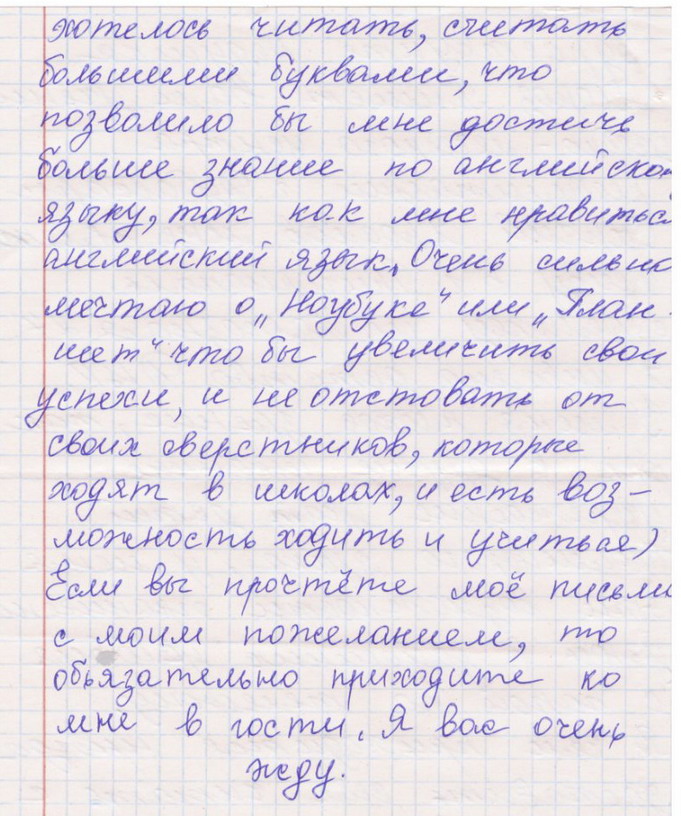 хотелось читать, считать
большими буквами, что
позволило бы мне достичь
больше знание по английско
языку, так как мне нравитьс
английский язык. Очень сильно
мечтаю о „Ноубуке" или „План
шет" что бы увеличить свои
успехи, и не отстовать от
своих сверстников, которые
ходят в школах, и есть воз-
можность ходить и учиться)
Если вы прочтёте моё письмо
с моим пожеланием, то
обьязательно приходите ко
мне в гости. Я вас очень
жду.